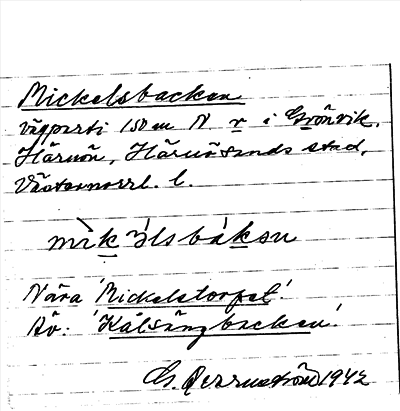 Mickelsbacken
vägparti 150 m N r i Grönvik.
Härnön, Härnösands stad,
Västernorrl. l.
mìkälsbákən
Nära 'Mickelstorpet'.
Äv: 'Kälsängbacken'.
G. 1942